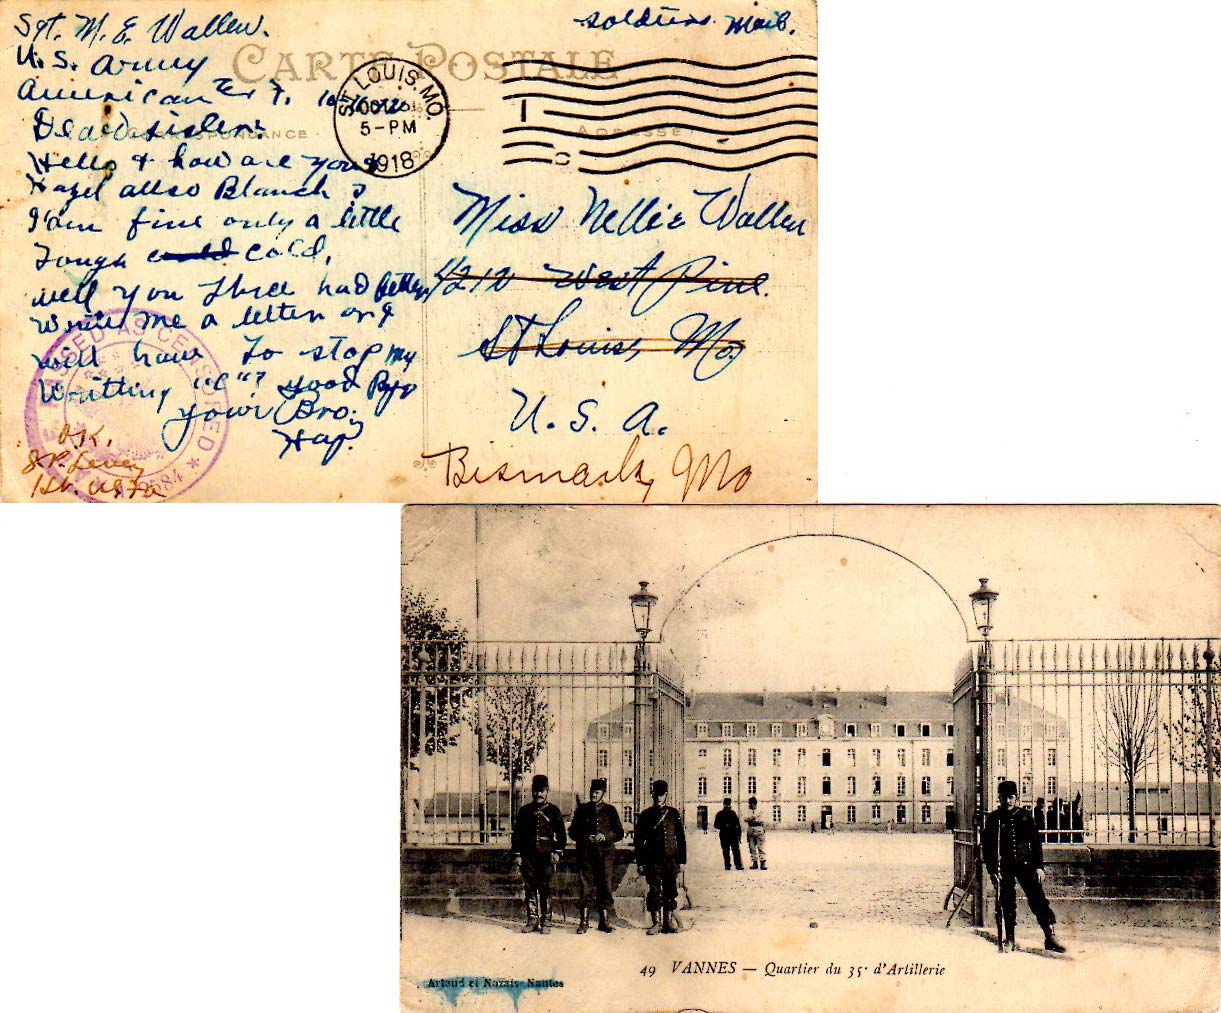 Sgt. M. E. Wallen.
U.S. Army
American F.
Soldiers Mail.
CARTE POSTALE
CORRESPONDANCE
ADRESSE
ST LOUIS, MO.
OCT 26
5-PM
1918
Dear Sister:
Hello & how are you &
Hazel allso Blanch?
I am fine only a little
Tough cold.
well you three had better
write me a letter or I
will have to stop my
Writting "C"? good Bye
your Bro.
Hap.
PASSED AS CENSORED
O.K.
Miss Nellie Wallen
4212 West Pine.
St Louis, Mo
U. S. A.
Bismark, Mo
49 VANNES — Quartier du 35e d'Artillerie
Artaud et Nozais-Nantes